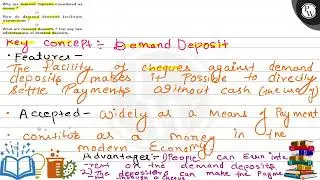 Why are demand deposits considered as money?
How do demand deposits facilitate
What are demand deposits? List any two advantages of demand deposits.
Key concept :- Demand Deposit
• Features -
The facility of cheques against demand
deposits makes it possible to directly
settle payments without cash (
• Accepted - widely as a means of Payment
• constitute as a money in the
modern Economy
Advantages:- 1) People can Earn inte
-rest on the demand deposits
2) The depositor can make the Payme
through a cheque